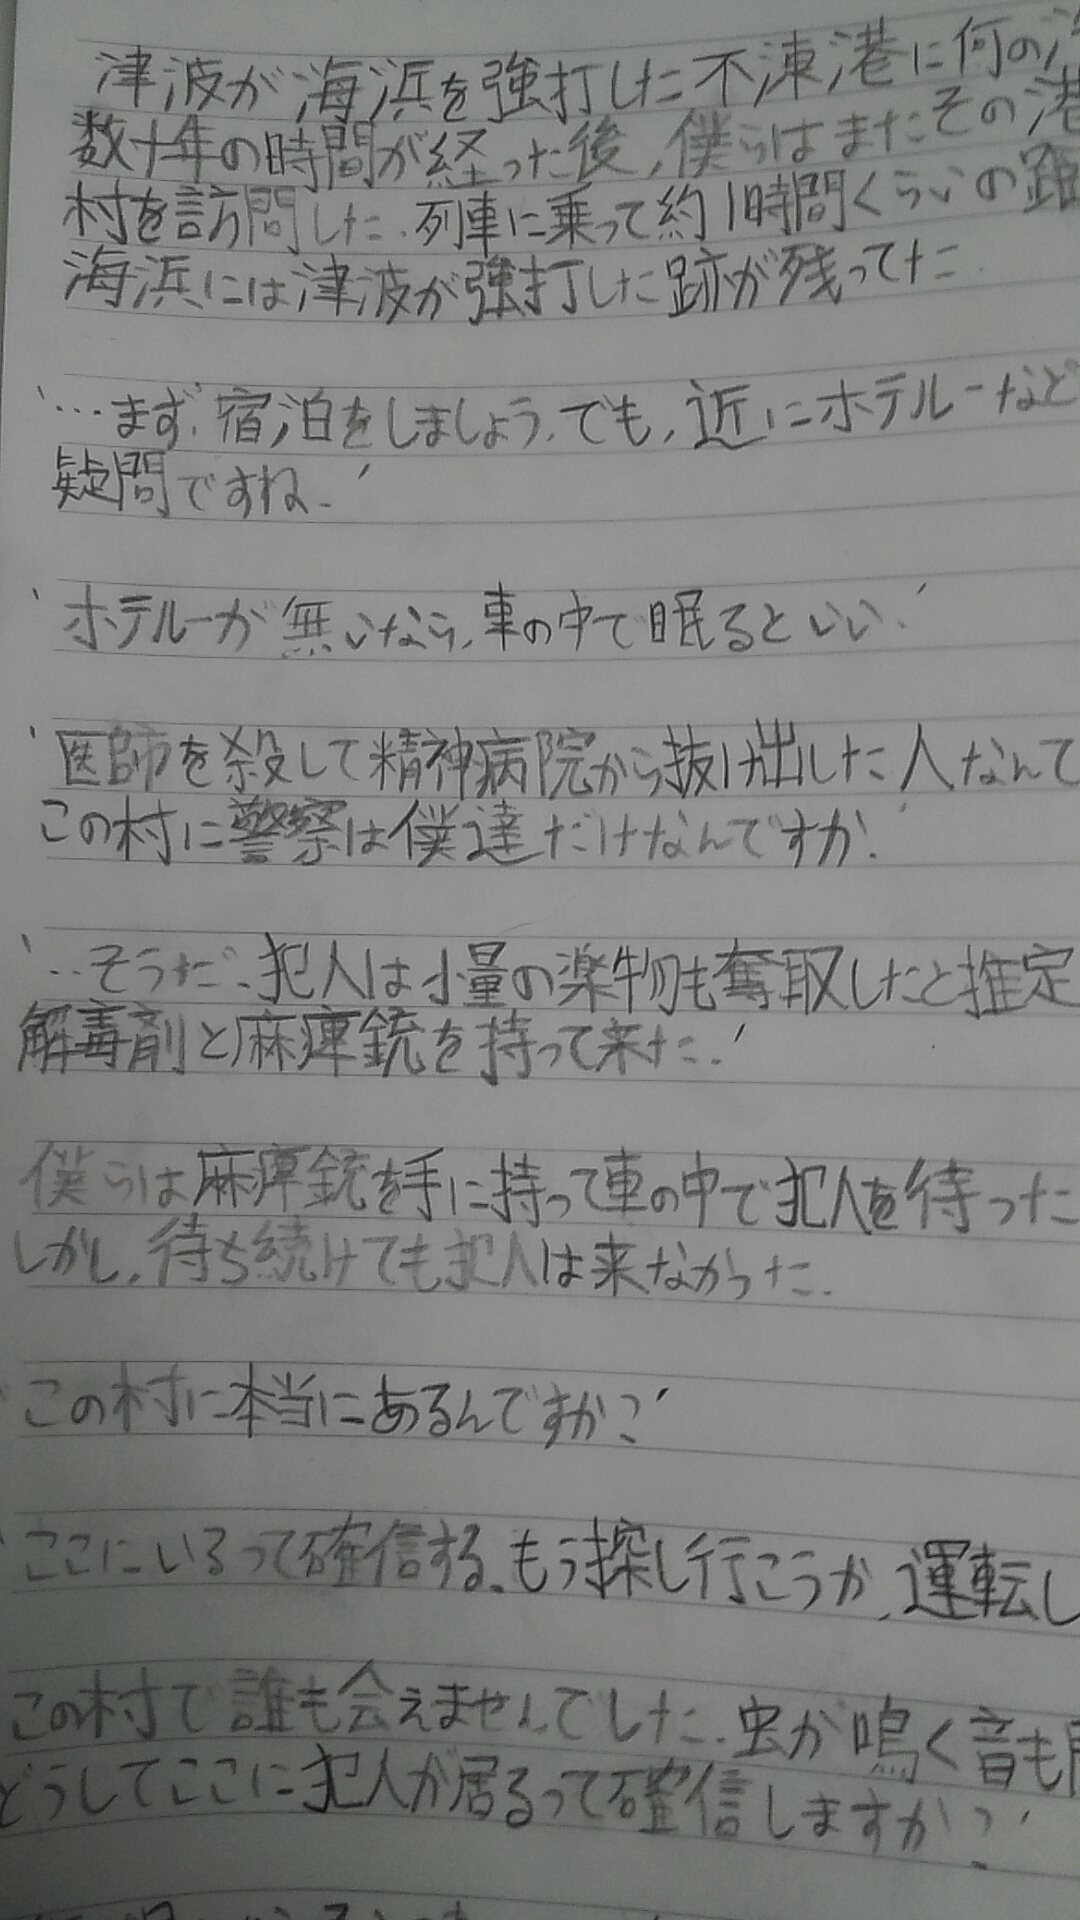 津波が海浜を強打した不凍港に何の
数十年の時間が経った後, 僕らはまたその港
村を訪問した. 列車に乗って約1時間くらいの距
海浜には津波が強打した跡が残ってた.
'…まず, 宿泊をしましょう. でも, 近にホテルーなど
疑問ですね.'
'ホテルーが無いなら, 車の中で眠るといい.'
'医師を殺して精神病院から抜け出した人なんて
この村に警察は僕達だけなんですか.'
'…そうだ. 犯人は小量の楽物も奪取したと推定
解毒剤と麻痺銃を持って来た.'
僕らは麻痺銃を手に持って車の中で犯人を待った
しかし, 待ち続けても犯人は来なかった.
'この村に本当にあるんですか?'
'ここにいるって確信する. もう探し行こうか. 運転し
この村で誰も会えませんでした. 虫が鳴く音も
どうしてここに犯人が居るって確信しますか?'